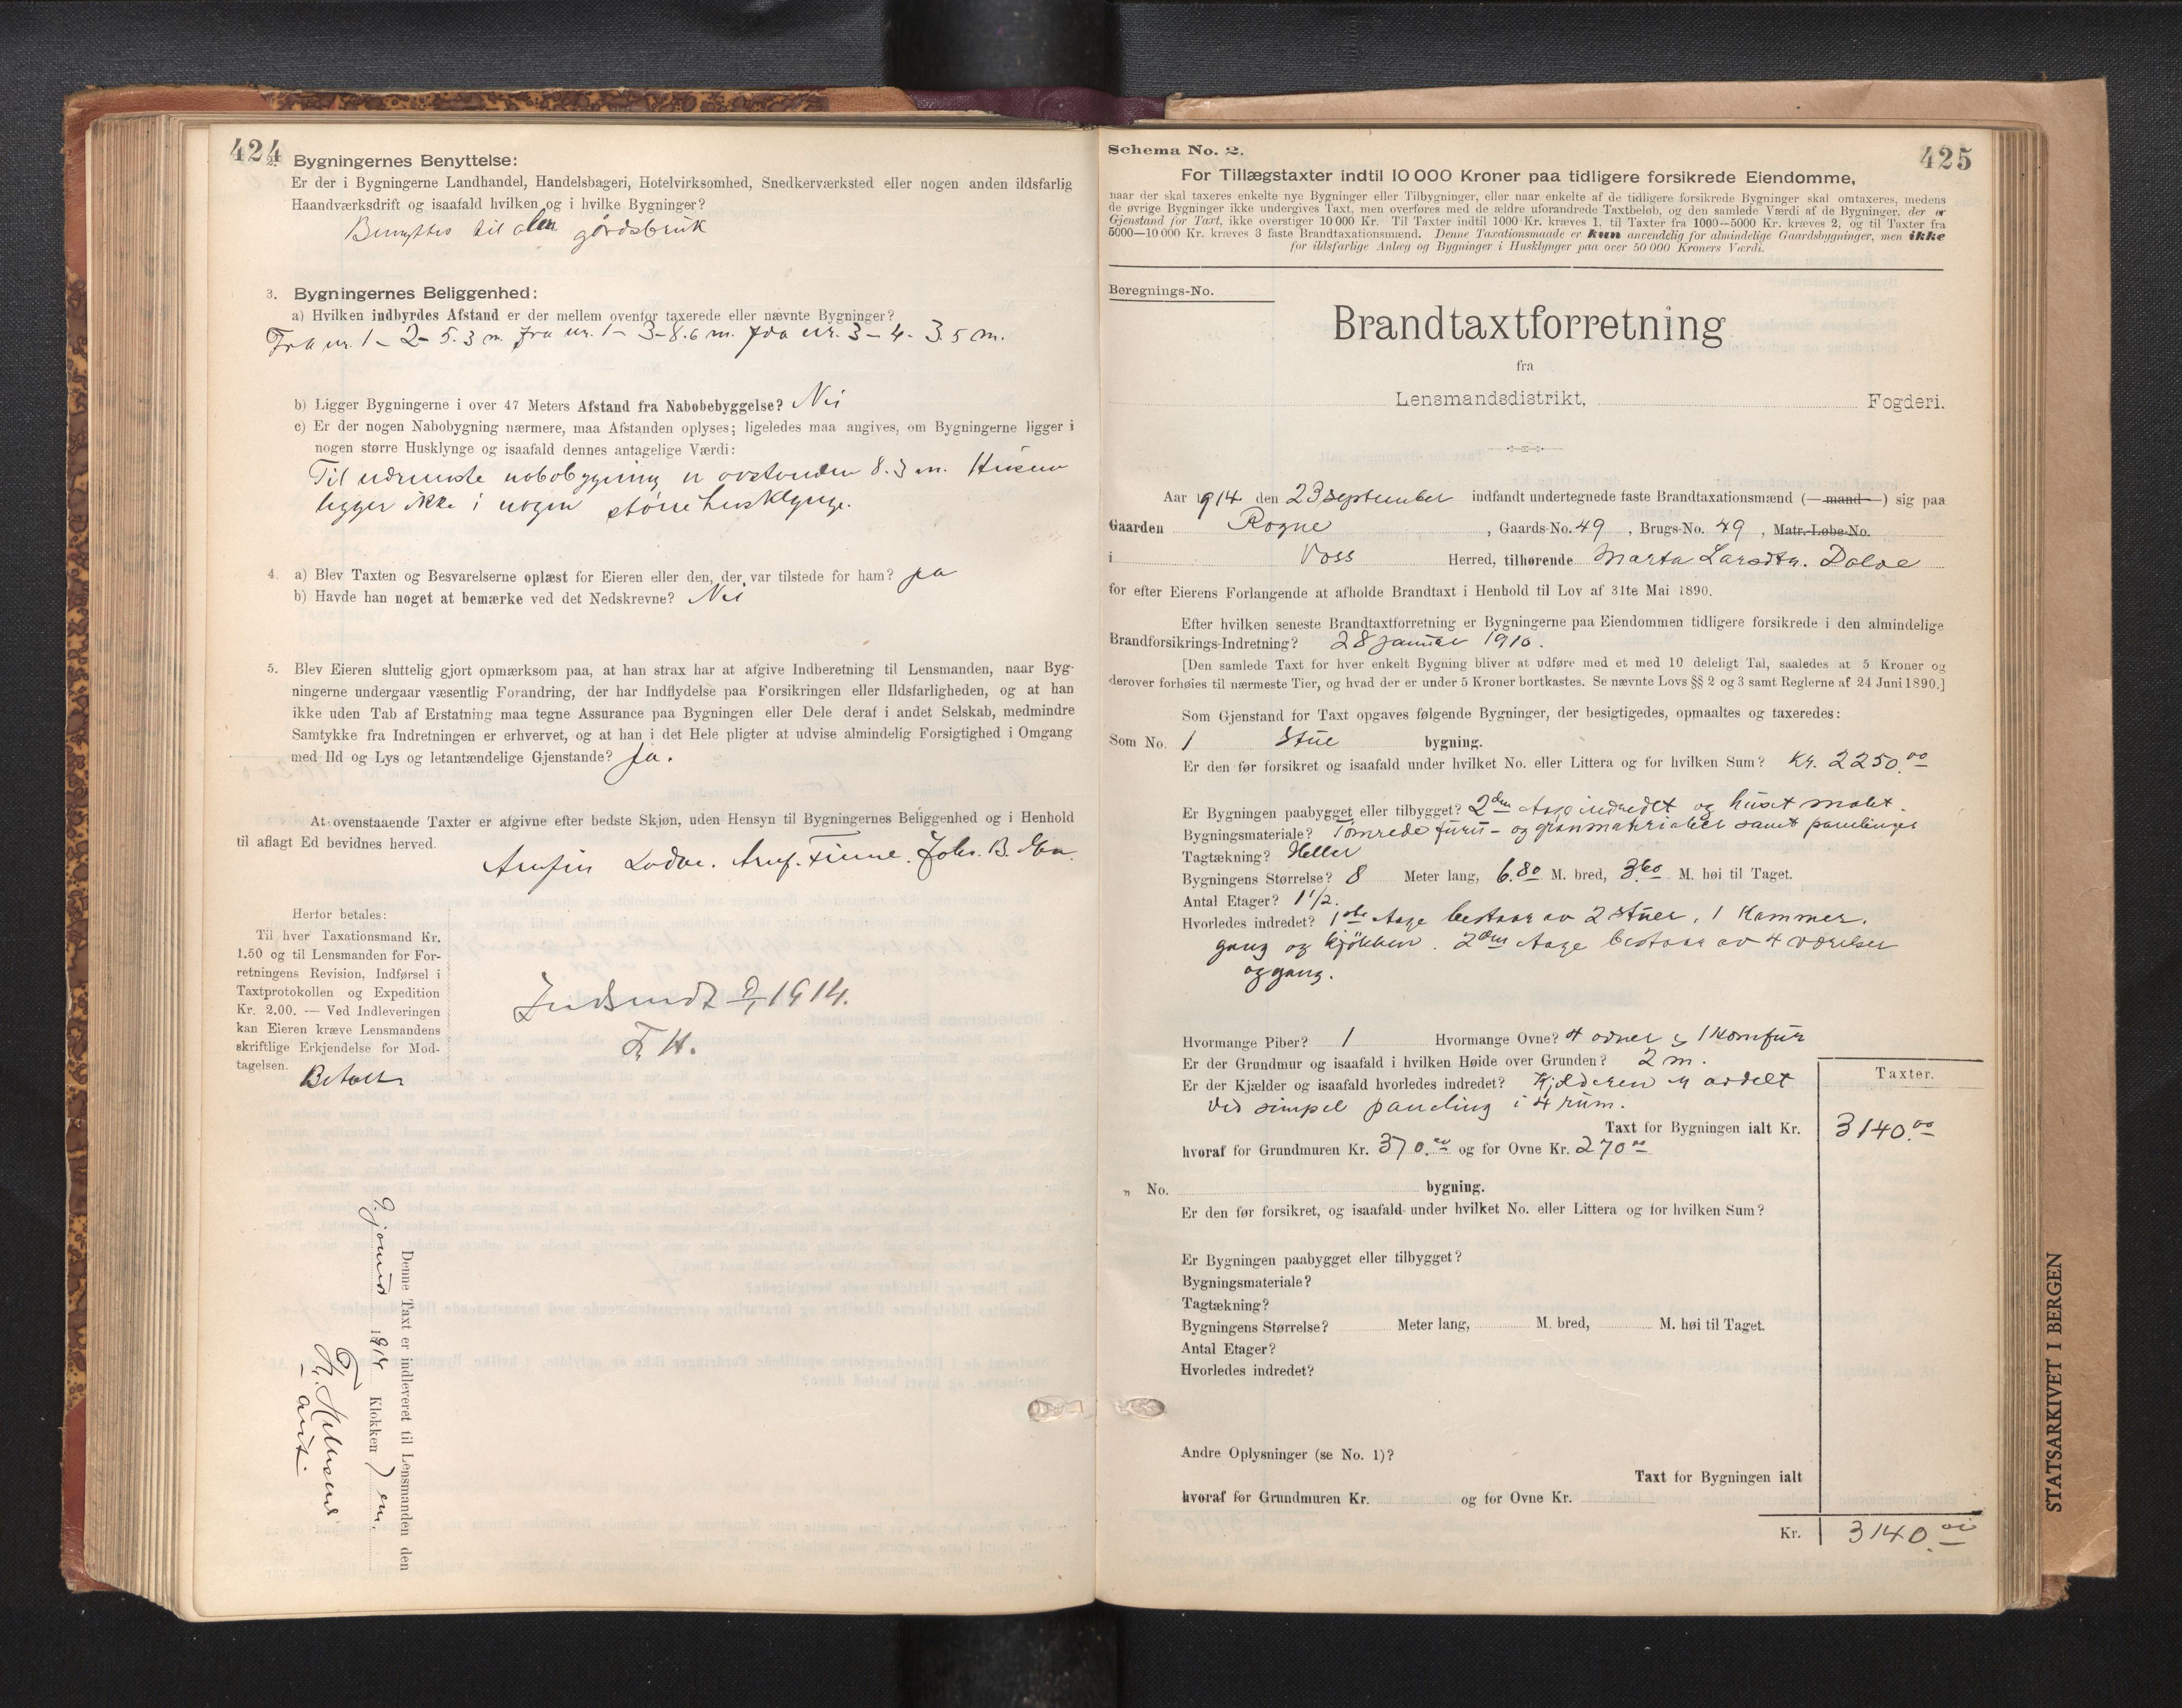 424
2. Bygningernes Benyttelse:
Er der i Bygningerne Landhandel, Handelsbageri, Hotelvirksomhed, Snedkerværksted eller nogen anden ildsfarlig
Haandværksdrift og isaafald hvilken og i hvilke Bygninger?
Benyttes til alm gårdsbruk
3. Bygningernes Beliggenhed:
a) Hvilken indbyrdes Afstand er der mellem ovenfor taxerede eller nævnte Bygninger?
Fra nr. 1 – 2 – 5.3 m. fra nr. 1 – 3 – 8.6 m. fra nr. 3 – 4 – 3.5 m.
b) Ligger Bygningerne i over 47 Meters Afstand fra Nabobebyggelse? Nei
c) Er der nogen Nabobygning nærmere, maa Afstanden oplyses; ligeledes maa angives, om Bygningerne ligger i
nogen større Husklynge og isaafald dennes antagelige Værdi:
Til nærmeste nabobygning er avstanden 8.3 m. Husene
ligger ikke i nogen större husklynge.
4. a) Blev Taxten og Besvarelserne oplæst for Eieren eller den, der var tilstede for ham? Ja
b) Havde han noget at bemærke ved det Nedskrevne? Nei
5. Blev Eieren sluttelig gjort opmærksom paa, at han strax har at afgive Indberetning til Lensmanden, naar Byg-
ningerne undergaar væsentlig Forandring, der har Indflydelse paa Forsikringen eller Ildsfarligheden, og at han
ikke uden Tab af Erstatning maa tegne Assurance paa Bygningen eller Dele deraf i andet Selskab, medmindre
Samtykke fra Indretningen er erhvervet, og at han i det Hele pligter at udvise almindelig Forsigtighed i Omgang
med Ild og Lys og letantændelige Gjenstande? Ja.
At ovenstaaende Taxter er afgivne efter bedste Skjøn, uden Hensyn til Bygningernes Beliggenhed og i Henhold
til aflagt Ed bevidnes herved.
Arnfin Finne. Johs. B.
Herfor betales:
Til hver Taxationsmand Kr.
1.50 og til Lensmanden for For-
retningens Revision, Indførsel i
Taxtprotokollen og Expedition
Kr. 2.00. — Ved Indleveringen
kan Eieren kræve Lensmandens
skriftlige Erkjendelse for Mod-
tagelsen.
Betalt
Indsendt 9/1 1914.
F. H.
Denne Taxt er indleveret til Lensmanden den
9. januar 1914 Klokken 7 em.
Schema No. 2.
425
For Tillægstaxter indtil 10 000 Kroner paa tidligere forsikrede Eiendomme,
naar der skal taxeres enkelte nye Bygninger eller Tilbygninger, eller naar enkelte af de tidligere forsikrede Bygninger skal omtaxeres, medens
de øvrige Bygninger ikke undergives Taxt, men overføres med de ældre uforandrede Taxtbeløb, og den samlede Værdi af de Bygninger, der er
Gjenstand for Taxt, ikke overstiger 10 000 Kr. Til Taxter indtil 1000 Kr. kræves 1, til Taxter fra 1000—5000 Kr. kræves 2, og til Taxter fra
5000—10 000 Kr. kræves 3 faste Brandtaxationsmænd. Denne Taxationsmaade er kun anvendelig for almindelige Gaardsbygninger, men ikke
for ildsfarlige Anlæg og Bygninger i Husklynger paa over 50 000 Kroners Værdi.
Beregnings-No.
Brandtaxtforretning
fra
Lensmandsdistrikt, Fogderi.
Aar 1914 den 23 september indfandt undertegnede faste Brandtaxationsmænd (—mand—) sig paa
Gaarden Rogne, Gaards-No. 49, Brugs-No. 49, Matr.-Løbe-No.
i Voss Herred, tilhørende Marta Larsdtr. Dolve
for efter Eierens Forlangende at afholde Brandtaxt i Henhold til Lov af 31te Mai 1890.
Efter hvilken seneste Brandtaxtforretning er Bygningerne paa Eiendommen tidligere forsikrede i den almindelige
Brandforsikrings-Indretning? 28 januar 1910.
[Den samlede Taxt for hver enkelt Bygning bliver at udføre med et med 10 deleligt Tal, saaledes at 5 Kroner og
derover forhøies til nærmeste Tier, og hvad der er under 5 Kroner bortkastes. Se nævnte Lovs §§ 2 og 3 samt Reglerne af 24 Juni 1890.]
Som Gjenstand for Taxt opgaves følgende Bygninger, der besigtigedes, opmaaltes og taxeredes:
Som No. 1 Stue bygning.
Er den før forsikret og isaafald under hvilket No. eller Littera og for hvilken Sum? Kr. 2250.00
Er Bygningen paabygget eller tilbygget? 2den etage indredt og huset malet.
Bygningsmateriale? Tömrede furu- og granmaterialer samt panelinger
Tagtækning? Heller
Bygningens Størrelse? 8 Meter lang, 6.80 M. bred, 3.60 M. høi til Taget.
Antal Etager? 1 1/2.
Hvorledes indredet? 1ste etage bestaar av 2 stuer, 1 kammer.
gang og kjökken. 2den etage bestaar av 4 værelser
og gang.
Hvormange Piber? 1 Hvormange Ovne? 4 ovner og 1 komfur
Er der Grundmur og isaafald i hvilken Høide over Grunden? 2 m.
Er der Kjælder og isaafald hvorledes indredet? Kjælderen er avdelt
ved simpel paneling i 4 rum.
Taxter.
Taxt for Bygningen ialt Kr. 3140.00
hvoraf for Grundmuren Kr. 370.00 og for Ovne Kr. 270.00
„ No. bygning.
Er den før forsikret, og isaafald under hvilket No. eller Littera og for hvilken Sum?
Er Bygningen paabygget eller tilbygget?
Bygningsmateriale?
Tagtækning?
Bygningens Størrelse? Meter lang, M. bred, M. høi til Taget.
Antal Etager?
Hvorledes indredet?
Andre Oplysninger (se No. 1)?
Taxt for Bygningen ialt
hvoraf for Grundmuren Kr. og for Ovne Kr.
Kr. 3140.00
STATSARKIVET I BERGEN